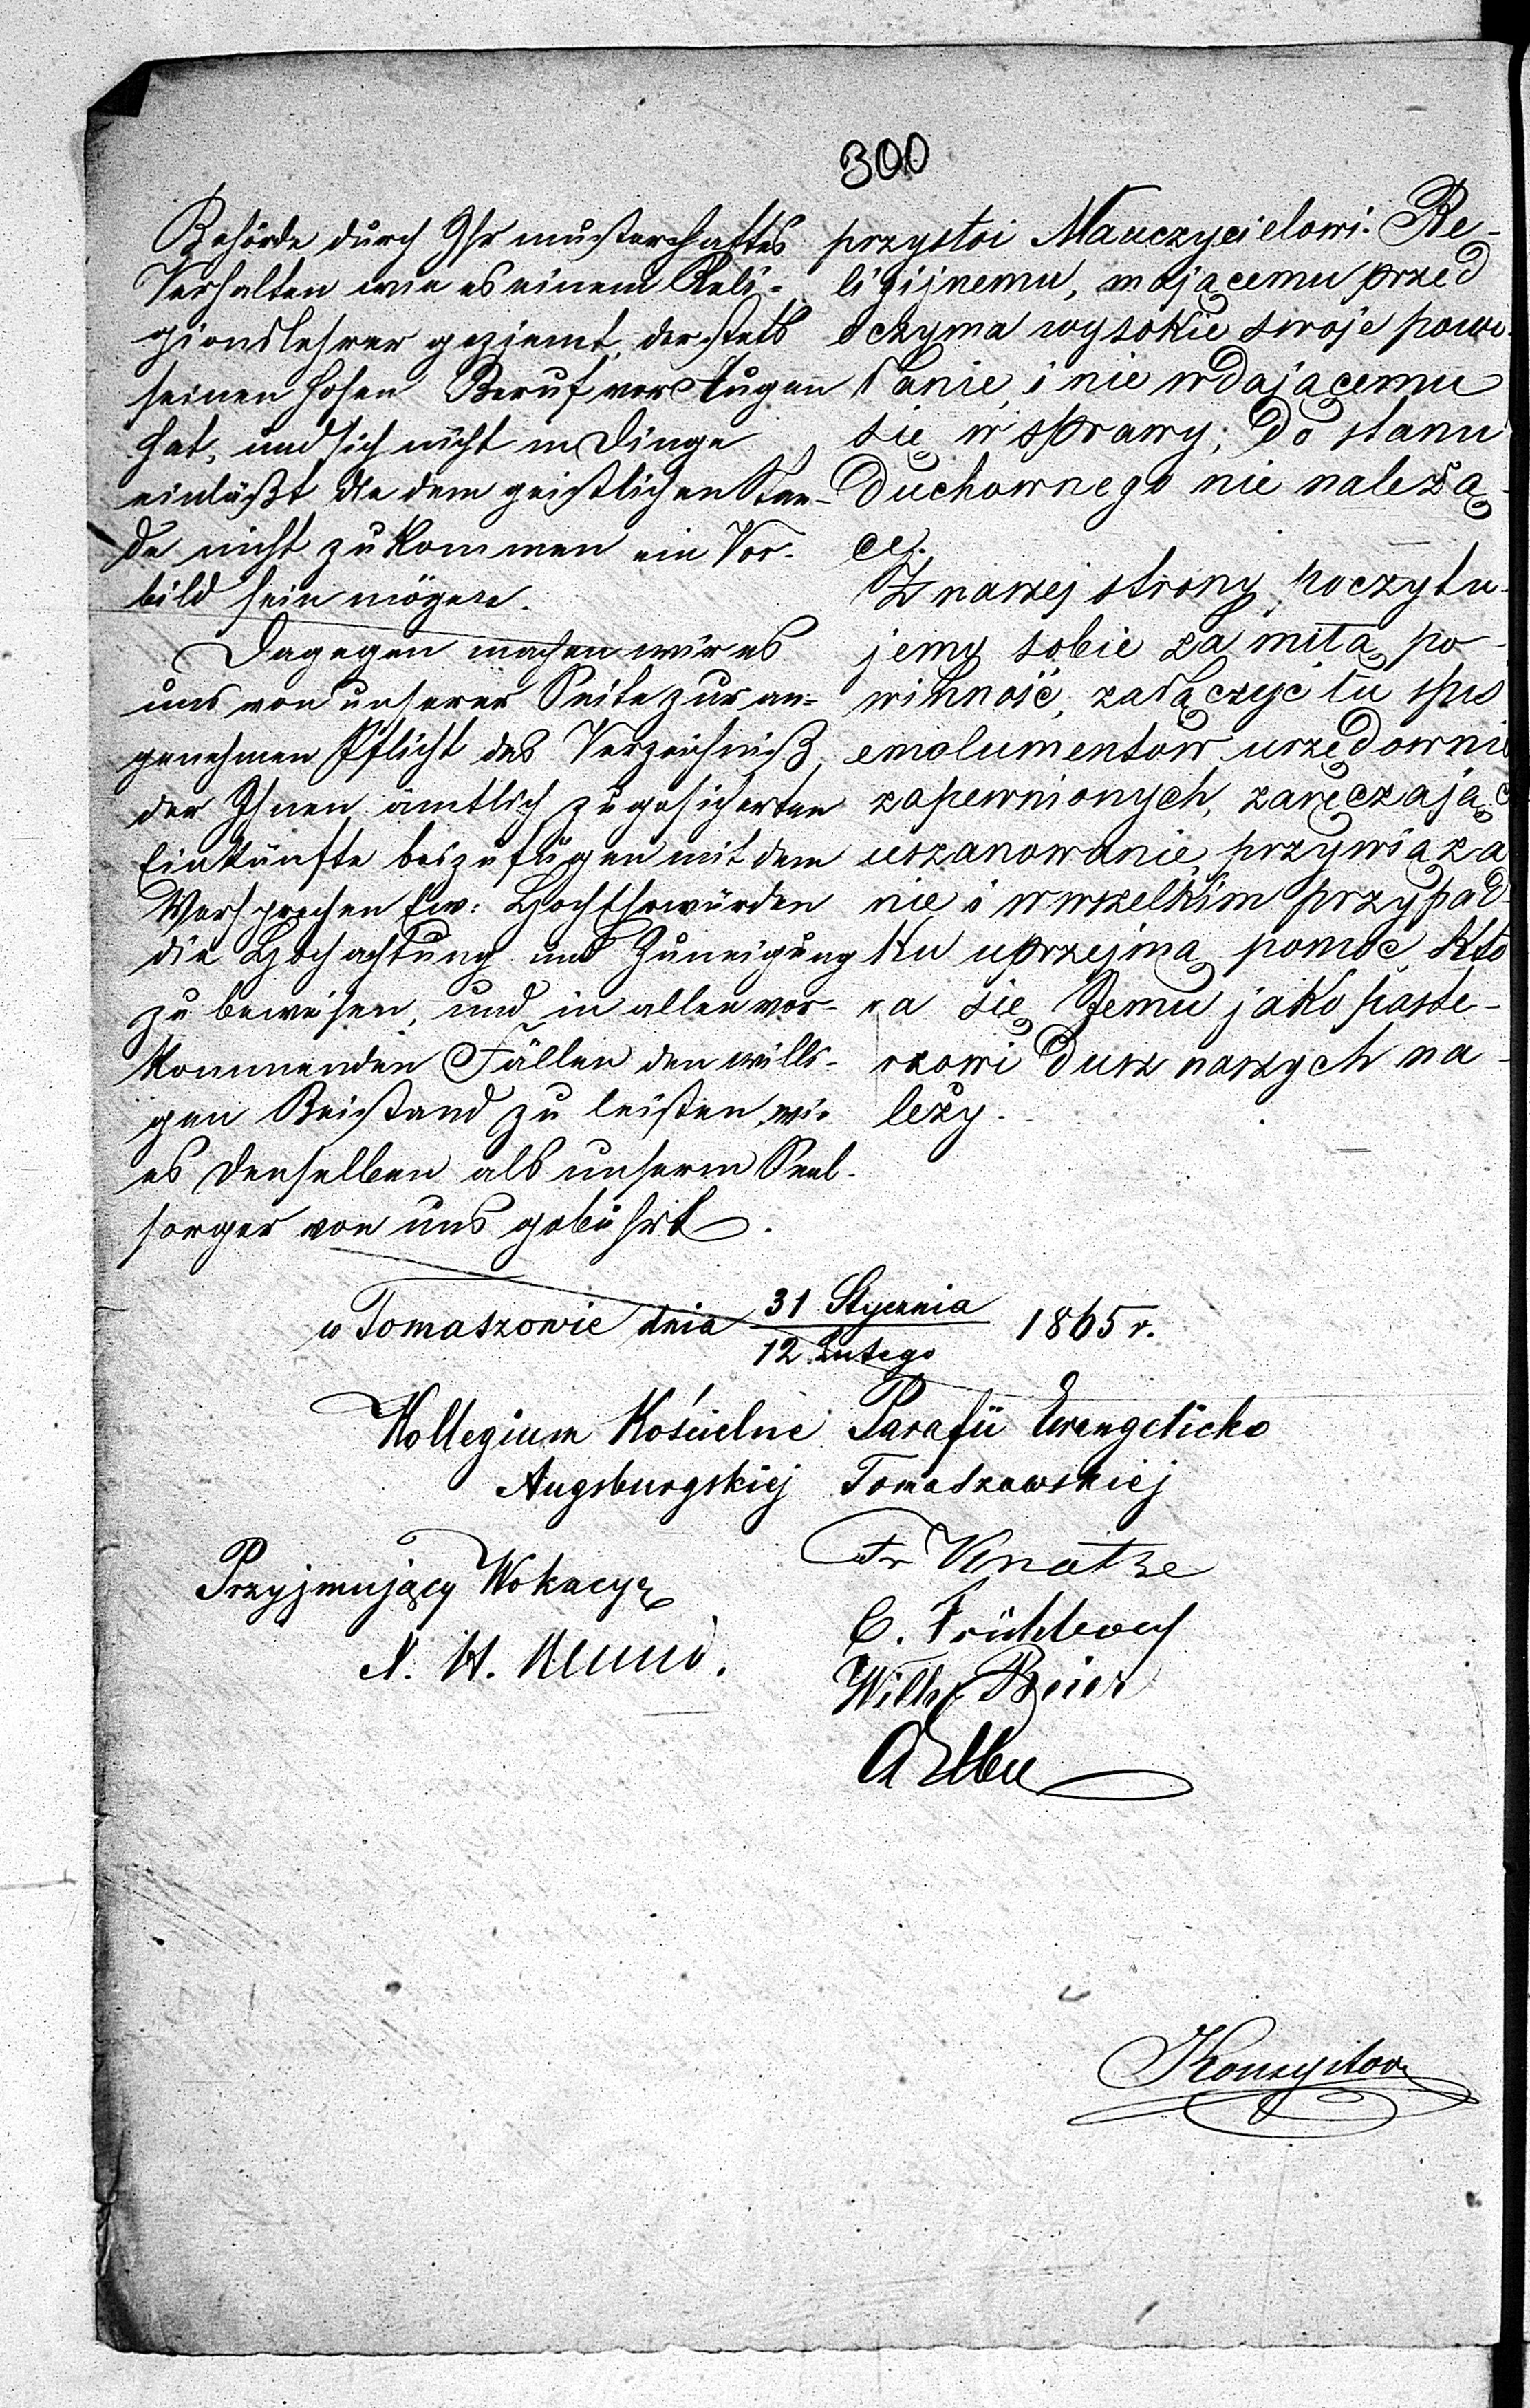 300
Behörde durch Ihr musterhaftes
Verhalten wie es einem Reli-
gionslehrer geziemt, der stets
seinen hohen Beruf vor Augen
hat, und sich nicht in Dinge
einläßt die dem geistlichen Stan-
de nicht zukommen ein Vor-
bild sein mögen.
Dagegen machen wir es
uns von unserer Seite zur an-
genehmen Pflicht das Verzeichniß,
der Ihnen ämtlich zugesicherten
Einkünfte beizufügen mit dem
Versprechen Ew: HochEhrwürden
die Hochachtung und Zuneigung
zu beweisen, und in allen vor-
kommenden Fällen den willi-
gen Beistand zu leisten, wie
es denselben als unserm Seel-
sorger von uns gebührt.
przystoi Nauczycielowi Re-
ligijnemu, mającemu przed
oczyma wysokie swoje powo-
łanie, i nie wdającemu
się w sprawy, do stanu
duchownego nie należą-
ce.
Z naszej strony poczytu-
jemy sobie za miłą po-
winność, załączyć tu spis
emolumentów urzędownie
zapewnionych, zaręczając
uszanowanie, przywiąza
nie i w wszelkim przypad-
ku uprzejmą pomoc któ
ra się Jemu jako paste-
rzowi dusz naszych na-
leży.
w Tomaszowie dnia 31 Stycznia / 12 Lutego 1865 r.
Kollegium Kościelne Parafii Ewangelicko
Augsburgskiej Tomaszowskiej
Przyjmujący Wokacyę
Fr Knothe
Wilh. Beier
Konsystorz